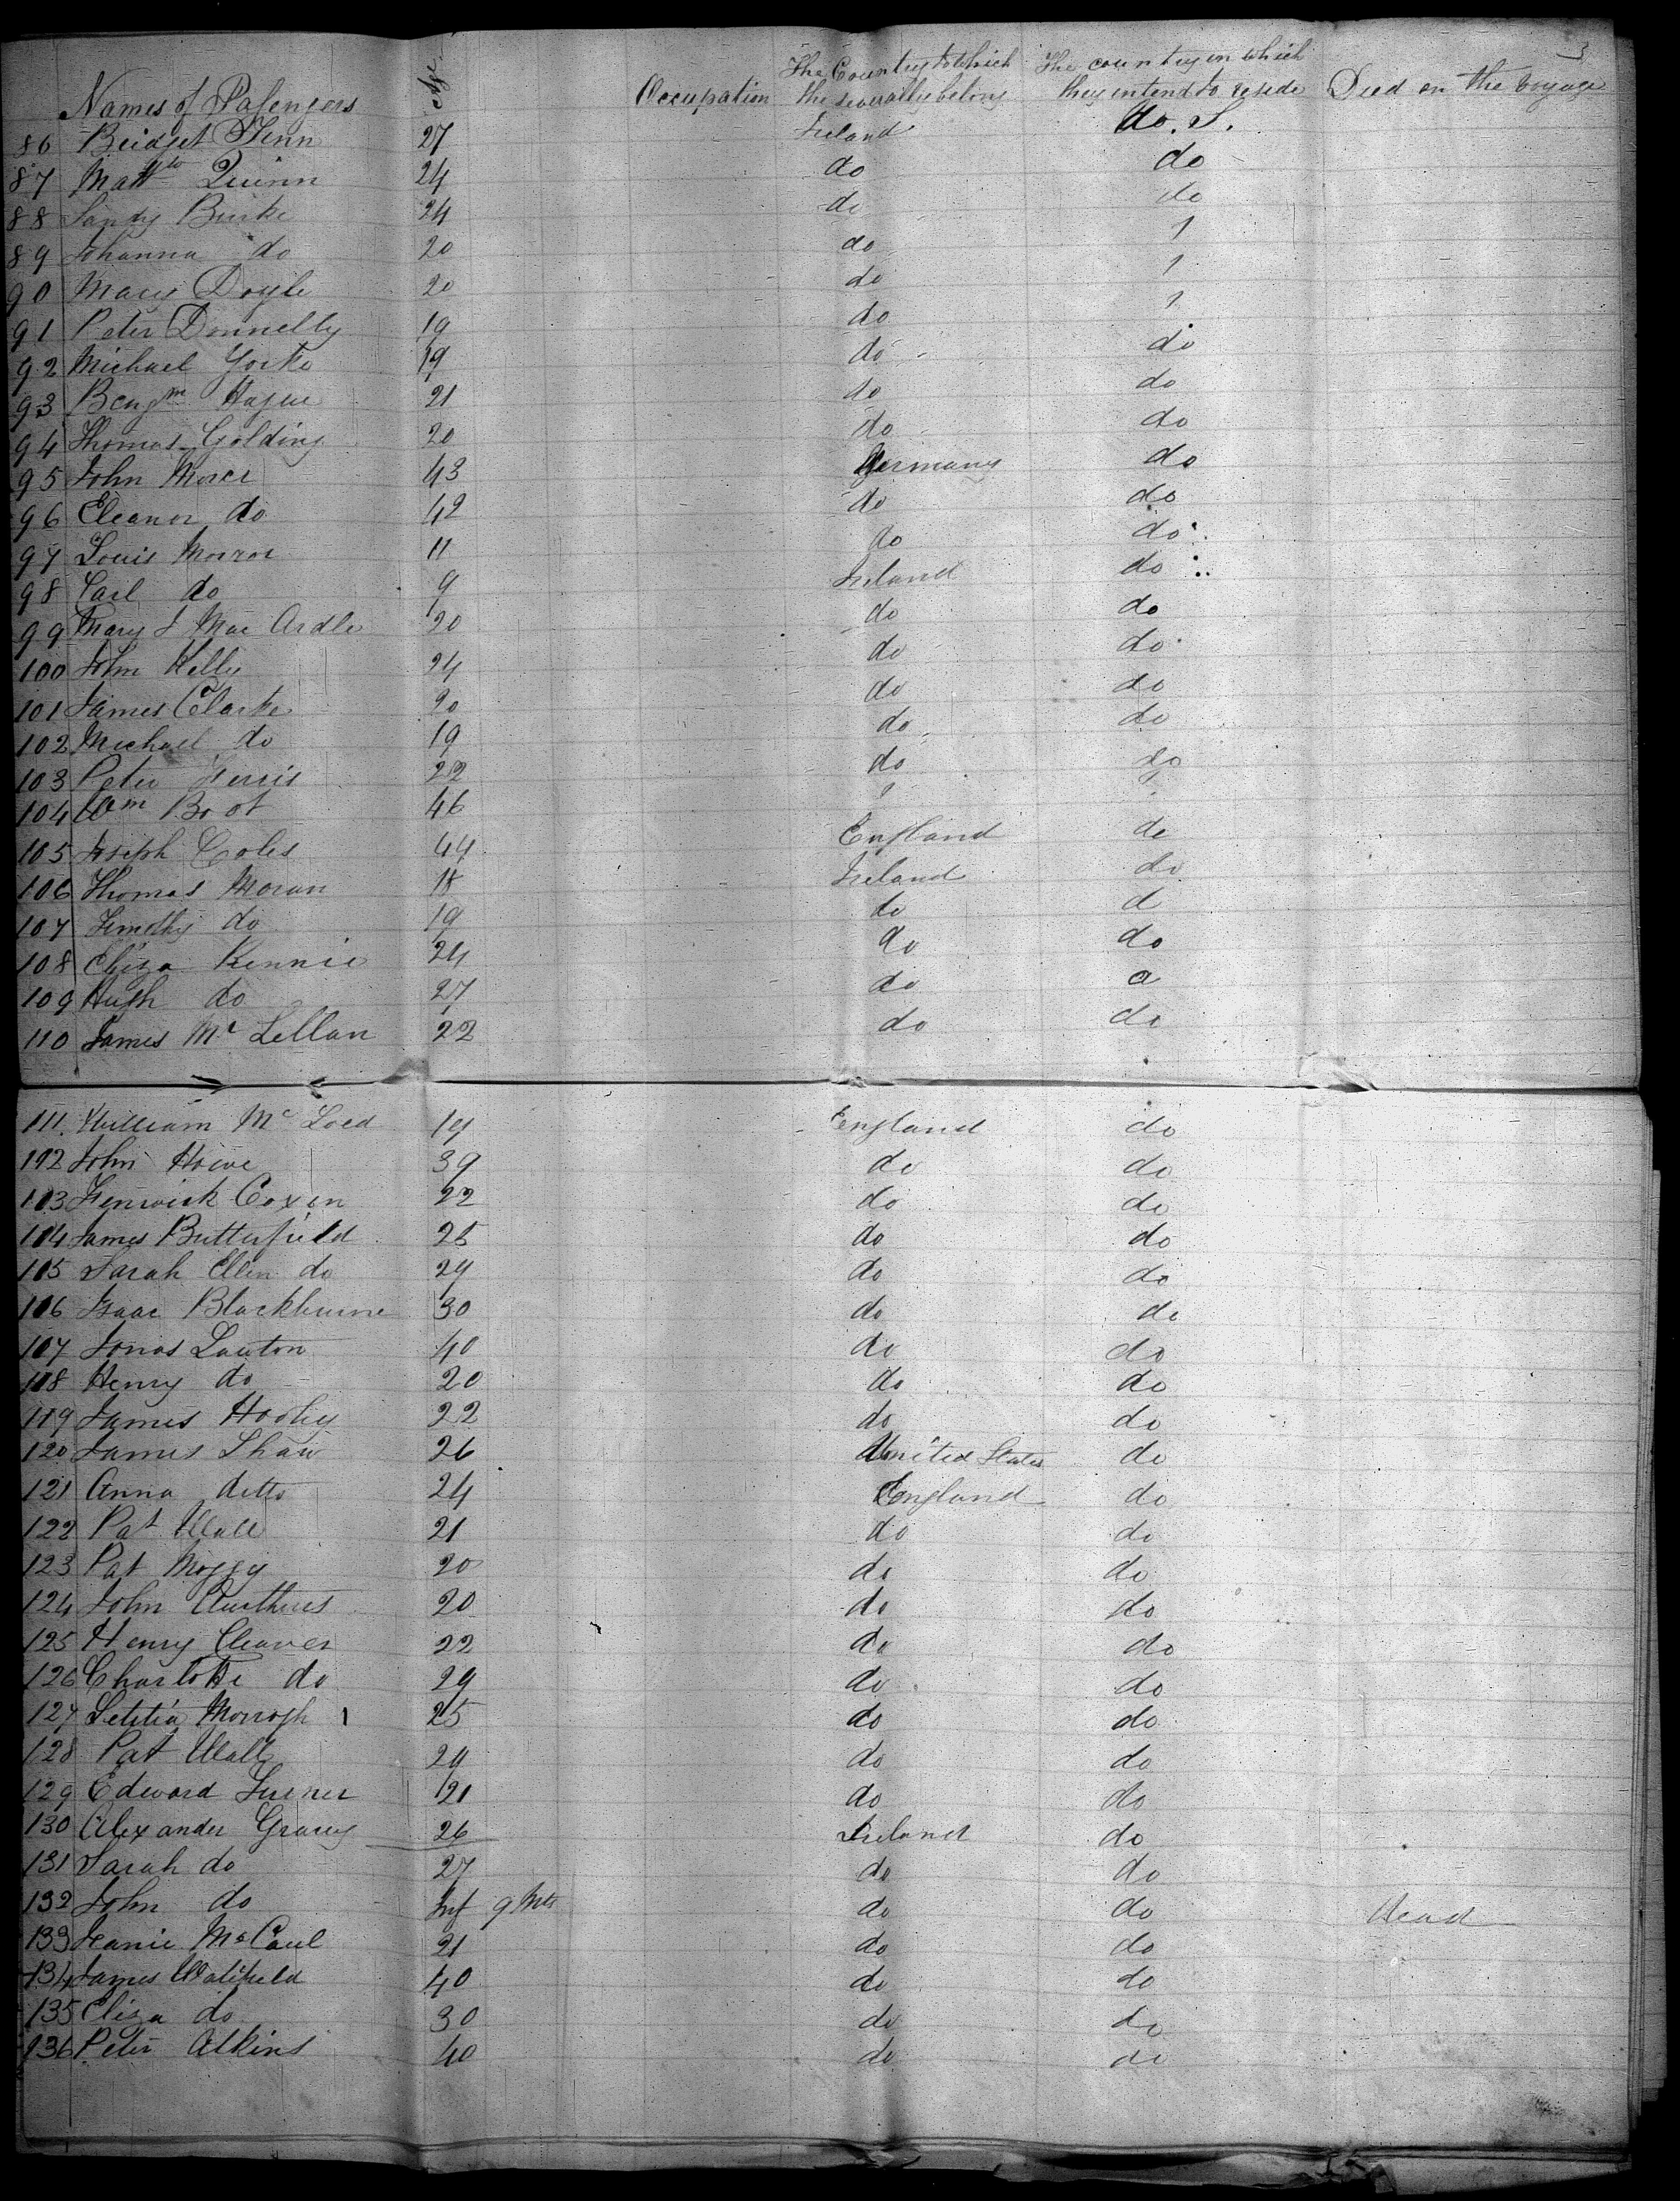 3
Names of Passengers Age Occupation The Country to which the severally belong The country in which they intend to reside Died on the voyage
86 Bridget Fenn 27 Ireland do. S.
87 Matt Quinn 24 do do
88 Burke 24 do do
89 Johanna do 20 do "
90 Mary Doyle 20 do "
91 Peter Donnelly 19 do "
92 Michael Yorke 19 do do
93 Benjm Hague 21 do do
94 Thomas Golding 20 do do
95 John Morer 43 Germany do
96 Eleanor do 42 do do
97 Louis Morror 11 do do
98 Carl do 9 Ireland do
99 Mary J Mac Ardle 20 do do
100 John Kelly 24 do do
101 James Clarke 20 do do
102 Michael do 19 do do
103 Peter Ferris 22 do do
104 Wm Boot 46 "
105 Joseph Coles 44 England do
106 Thomas Moran 18 Ireland do
107 Timothy do 19 do d
108 Eliza Rennie 24 do do
109 Hugh do 27 do a
110 James Mc Lellan 22 do do
111. William Mc 19 England do
112 John Howe 39 do do
113 Fenwick Coxen 22 do do
114 James Butterfield 25 do do
115 Sarah Ellen do 24 do do
116 Isaac Blackburne 30 do do
117 Jonas Lawton 40 do do
118 Henry do 20 do do
119 James Hooley 22 do do
120 James Shaw 26 United States do
121 Anna ditto 24 England do
122 Pat Wall 21 do do
123 Pat Moggy 20 do do
124 John 20 do do
125 Henry Cleaver 22 do do
126 Charlotte do 29 do do
127 Letitia Morrogh 25 do do
128 Pat Wall 29 do do
129 Edward Turner 21 do do
130 Alexander Gracey 26 Ireland do
131 Sarah do 27 do do
132 John do Inf 9 Mts do do Dead
133 Jeanie McCaul 21 do do
134 James 40 do do
135 Eliza do 30 do do
136 Peter Atkins 40 do do